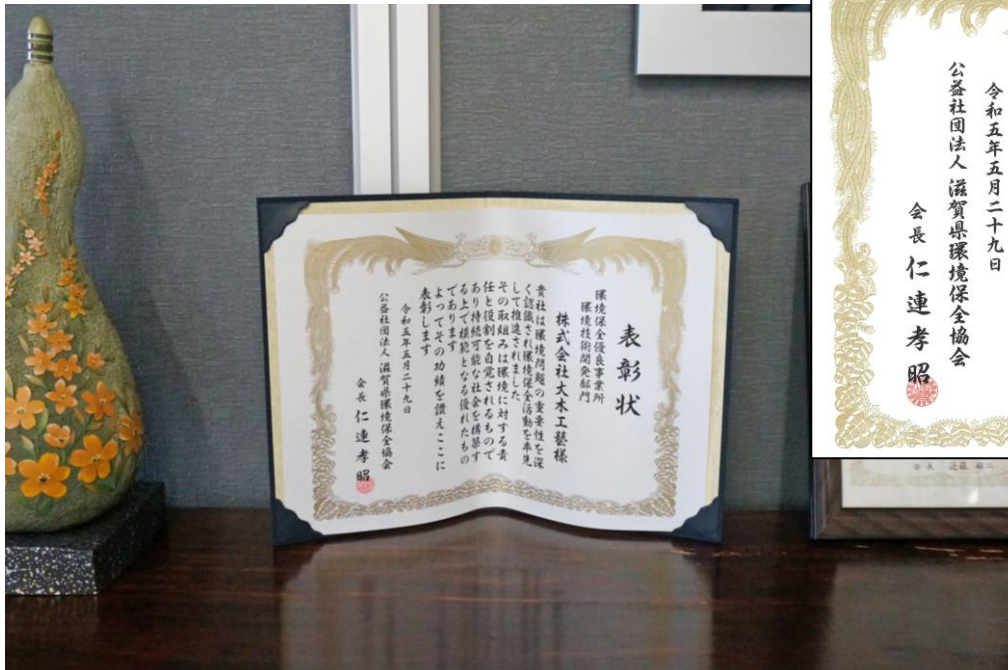 表彰状
環境保全優良事業所
環境技術開発部門
株式会社大木工藝様
貴社は環境問題の重要性を深
く認識され環境保全活動を率先
して推進されました
その取組みは環境に対する責
任と役割を自覚されるもので
あり持続可能な社会を構築す
る上で模範となる優れたもの
であります
よってその功績を讃えここに
表彰します
令和五年五月二十九日
公益社団法人 滋賀県環境保全協会
会長 仁連孝昭
令和五年五月二十九日
公益社団法人 滋賀県環境保全協会
会長 仁連孝昭
会長